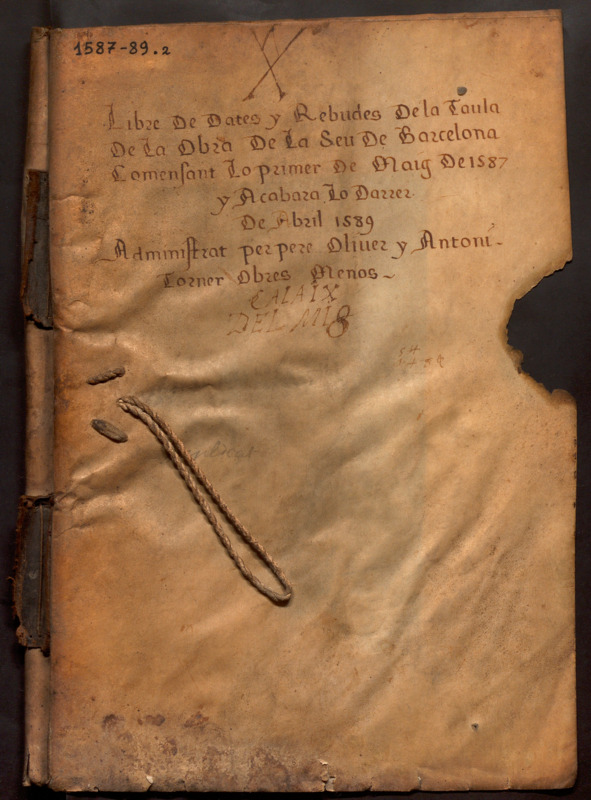 1587-89.2
X
Libre De Dates y Rebudes De la Taula
De La Obra De La Seu De Barcelona
Comensant Lo primer De Maig De 1587
y Acabara Lo Darrer
De Abril 1589
Administrat per pere Oliuer y Antoni
Torner Obres Menos
CALAIX
DEL MIG